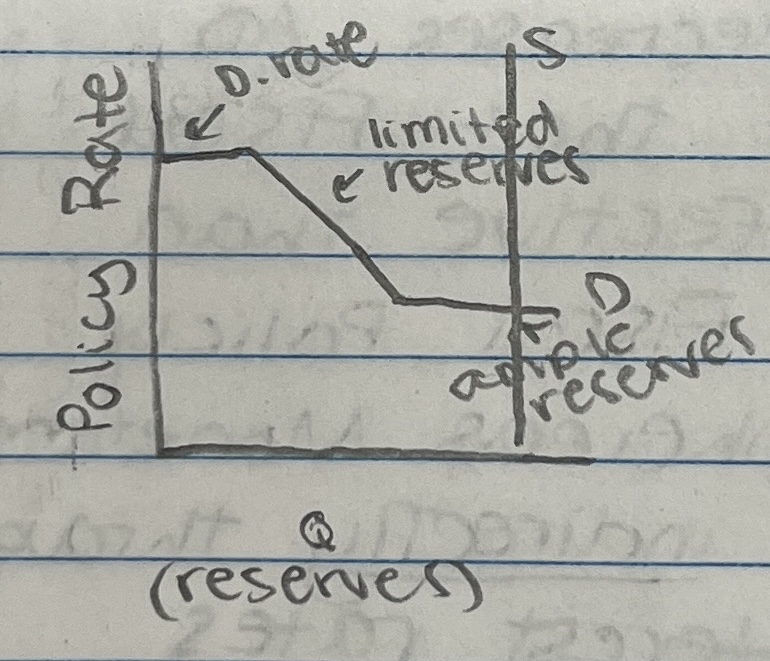 D. rate
S
limited
reserves
Policy Rate
D
ample
reserves
Q
(reserves)